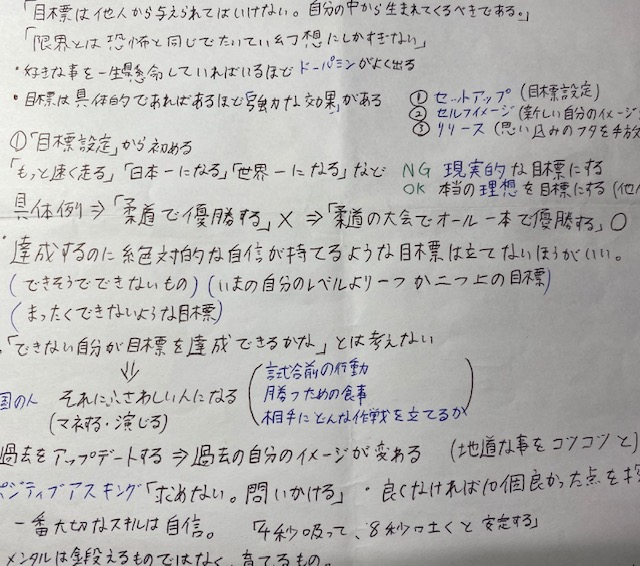 「目標は他人から与えられてはいけない。自分の中から生まれてくるべきである。」
「限界とは恐怖と同じでたいてい幻想にしかすぎない」
・好きな事を一生懸命していればいるほどドーパミンがよく出る
・目標は具体的であればあるほど「強力な効果」がある
① セットアップ (目標設定)
② セルフイメージ (新しい自分のイメージ
③ リリース (思い込みのフタを手放
①「目標設定」から初める
「もっと速く走る」「日本一になる」「世界一になる」など
NG 現実的な目標にする
OK 本当の理想を目標にする (他
具体例⇒「柔道で優勝する」× ⇒「柔道の大会でオール一本で優勝する」○
・達成するのに絶対的な自信が持てるような目標は立てないほうがいい。
(できそうでできないもの) (いまの自分のレベルより一つか二つ上の目標)
(まったくできないような目標)
「できない自分が目標を達成できるかな」とは考えない
⇓
国の人 それにふさわしい人になる
(マネする・演じる)
(試合前の行動
勝つための食事
相手にどんな作戦を立てるか)
過去をアップデートする⇒過去の自分のイメージが変わる (地道な事をコツコツと)
ポジティブアスキング「求めない。問いかける」・良くなければ10個良かった点を
一番大切なスキルは自信。 「4秒吸って、8秒吐くと安定する」
メンタルは鍛えるものではなく、育てるもの。